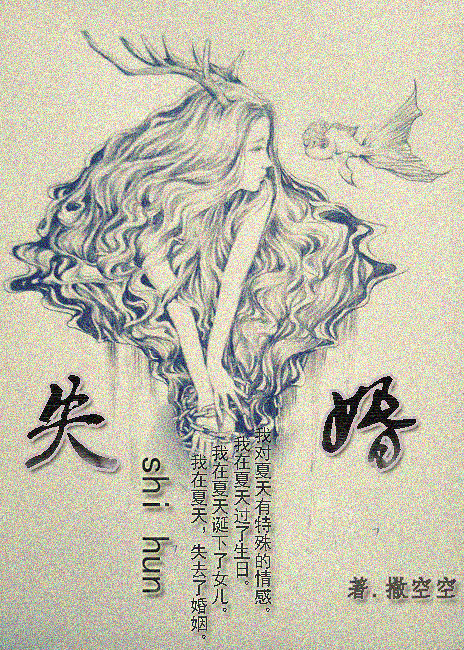 失 婚
shi hun
我对夏天有特殊的情感。
我在夏天过了生日。
我在夏天诞下了女儿。
我在夏天，失去了婚姻。
著.撒空空